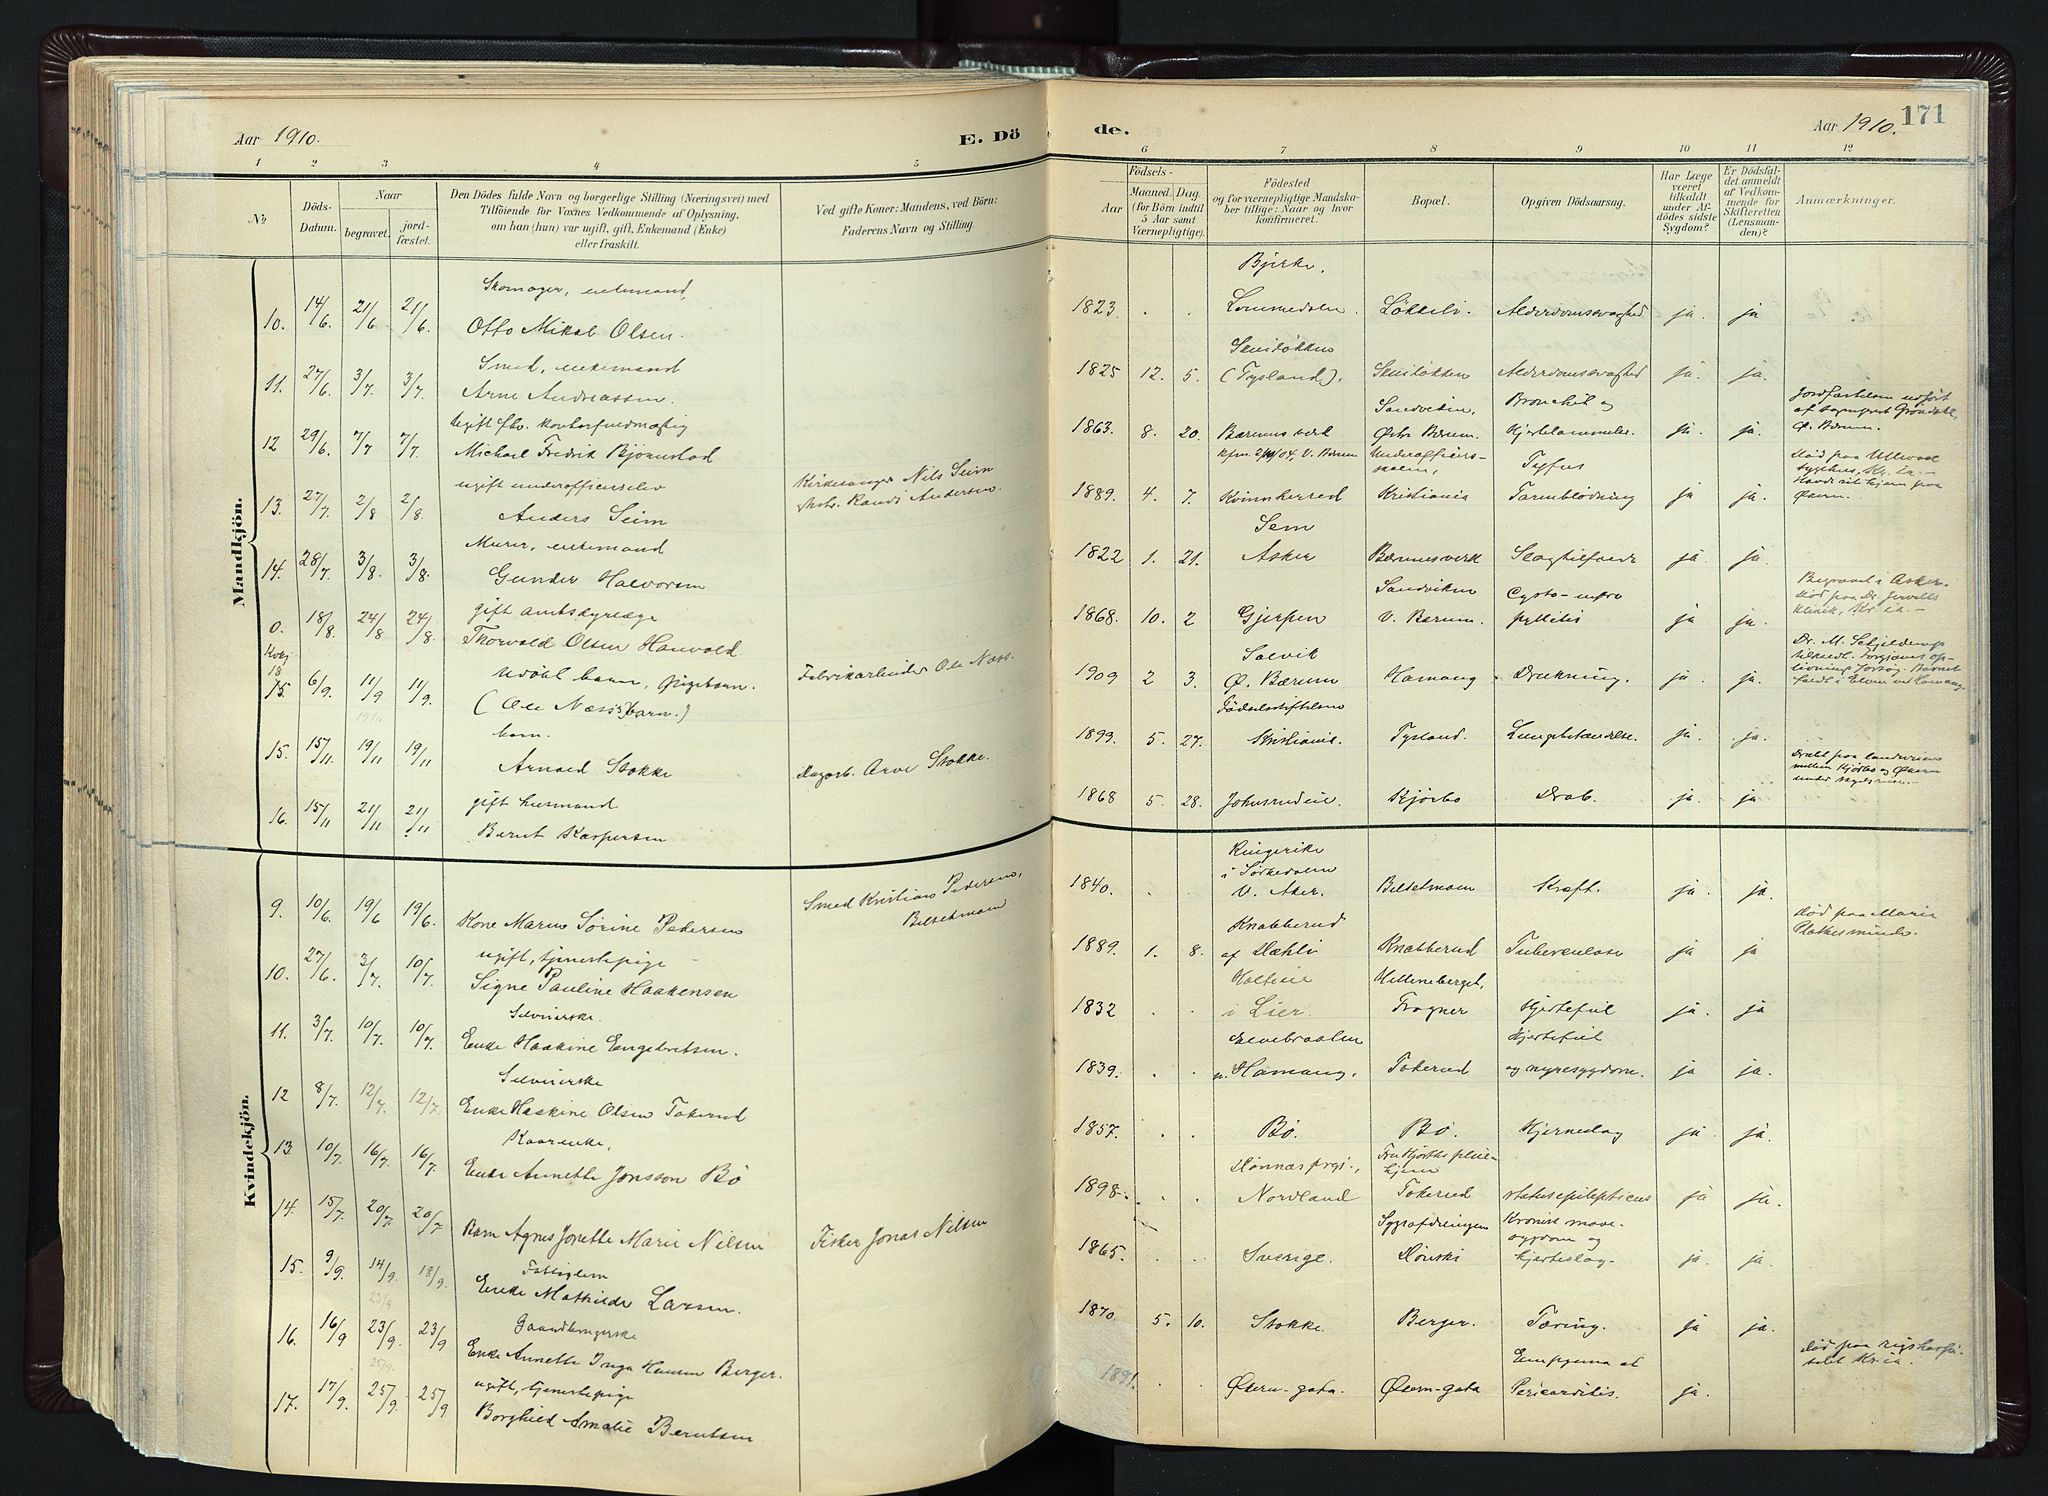 171
Aar 1910.
E. Dö
de.
Aar 1910.
1 2 3 4 5 6 7 8 9 10 11 12
No
Döds-
Datum.
Naar
begravet.
jord-
fæstet.
Den Dödes fulde Navn og borgerlige Stilling (Næringsvei) med
Tilföiende for Voxnes Vedkommende af Oplysning,
om han (hun) var ugift, gift, Enkemand (Enke)
eller fraskilt.
Ved gifte Koner: Mandens, ved Börn:
Faderens Navn og Stilling.
Födsels-
Aar
Maaned. Dag.
(for Börn indtil
5 Aar samt
Værnepligtige).
Födested
og for værnepligtige Mandska-
ber tillige: Naar og hvor
konfirmeret.
Bopæl.
Opgiven Dödsaarsag.
Har Læge
været
tilkaldt
under Af-
dödes sidste
Sygdom?
Er Dödsfal-
det anmeldt
af Vedkom-
mende for
Skifteretten
(Lensman-
den)?
Anmærkninger.
Mandkjön.
Skomager, enkemand,
Bjerke,
10. 14/6. 21/6 21/6. Otto Mikal Olsen. 1823. . . Lommedalen. Løkkeli. Alderdomssvaghed ja. ja
Smed, enkemand
Skuiløkken
11. 27/6. 3/7. 3/7. Arne Andreassen. 1825 12. 5. (Tysland). Skuiløkken Alderdomssvaghed ja. ja.
Ugift fhv. kontorfuldmægtig
Sandviken, Bronchit og
Jordfæstelsen udført
af sogneprest Grøndahl,
Ø. Bærum.
12 29/6. 7/7 7/7. Michael Fredrik Bjørnstad 1863. 8. 20. Bærums verk Østre Bærum. ja. ja.
ugift underofficerselev
Kirkesanger Nils Seim
Randi Andersen.
Kfm. /04, V. Bærum Underofficers-
Tyfus
Død paa Ullevaal
sygehus, Kr.ia.
13. 27/7. 2/8 2/8. Anders Seim 1889. 4. 7. Kvinnherred Kristiania Tarmblødning ja ja.
Murer, enkemand
Sem
14. 28/7. 3/8. 3/8. Gunder Halvorsen 1822 1. 21. Asker Bærumsverk Slagtilfælde ja ja.
gift amtsdyrlæge
Sandviken Cysto-
Begravet i Asker.
Død paa Dr.
klinik, Kr.ia.-
0. 18/8. 24/8 24/8. Thorvald Olsen Hauvold 1868. 10. 2 Gjerpen V. Bærum. ja ja.
Kvkj
18
Udøbt barn, pigebarn. Fabrikarbeider Ole Næss.
Solvik
Dr. M. Schjelderup
tilkaldt. Forgjæves op-
livningsforsøg. Barnet
faldt i Elven ved Hamang.
15. 6/9. 11/9 11/9. (Ole Næss's barn.) 1909 2 3. Ø. Bærum Hamang Drukning. ja. ja.
19/11
barn.
Fødselsstiftelsen
15. 15/11. 19/11 19/11 Arnold Stokke Dagarb. Arve Stokke. 1899. 5. 27. Kristiania. Tysland. Lungebetændelse. ja. ja.
gift husmand
Dræbt paa landeveien
mellem Kjørbo og Økern
16. 15/11 21/11 21/11 Bernt Kaspersen 1868 5. 28. Johnsrudeie. Kjørbo Drab. ja. ja
Kvindekjön.
Smed Kristian Pedersen,
Belsetmoen
Ringerike
i Sørkedalen
9. 10/6. 19/6 19/6. Kone Maren Sørine Pedersen 1840. . . V. Aker. Belsetmoen Kræft. ja. ja.
ugift, tjenestepige
Knabberud
Død paa Marie
Plathes minde.
10. 27/6. 3/7. 10/7. Signe Pauline Haakensen 1889. 1. 8. af Dæhli Knabberud Tuberculose ja ja
Selveierske.
Holteie Hellenberget,
11. 3/7. 10/7. 10/7. Enke Haakine Engebretsen. 1832 . . i Lier. Frogner Hjertefeil ja. ja
Selveierske
Elvebraaten Hjertefeil
12 8/7. 12/7. 12/7. Enke Haakine Olsen Tokerud 1839. . . n. Hamang. Tokerud og nyresygdom. ja ja.
Kaarenke,
13. 10/7. 16/7. 16/7. Enke Annette Jonsson Bø 1857. . . Bø. Bø. Hjerneslag ja. ja.
Dønnæs prgj., Fru Hjorths pleie-
hjem
14. 15/7. 20/7. 20/7. Barn Agnes Jonette Marie Nilsen Fisker Jonas Nilsen 1898. . . Nordland Tokerud status epilepticus ja ja.
Sygeafdelingen Kronisk mave-
sygdom og
15. 9/9. 14/9. 18/9. 1865. . . Sverige. Dønski hjerteslag. ja. ja.
Fattiglem
Enke Mathilde Larsen.
23/9
Gaardbrugerske
16. 16/9 23/9. 23/9 Enke Annette Inga Hansen Berger. 1870. 5. 10. Stokke. Berger. Tæring. ja ja.
25/9.
ugift, tjenestepige
Empyema et
Død paa rigshospi-
talet Kr.ia.
17. 17/9. 25/9. 25/9. Borghild Amalie Berntsen 1891. . . Økern-gata. Økern-gata Pericarditis. ja.